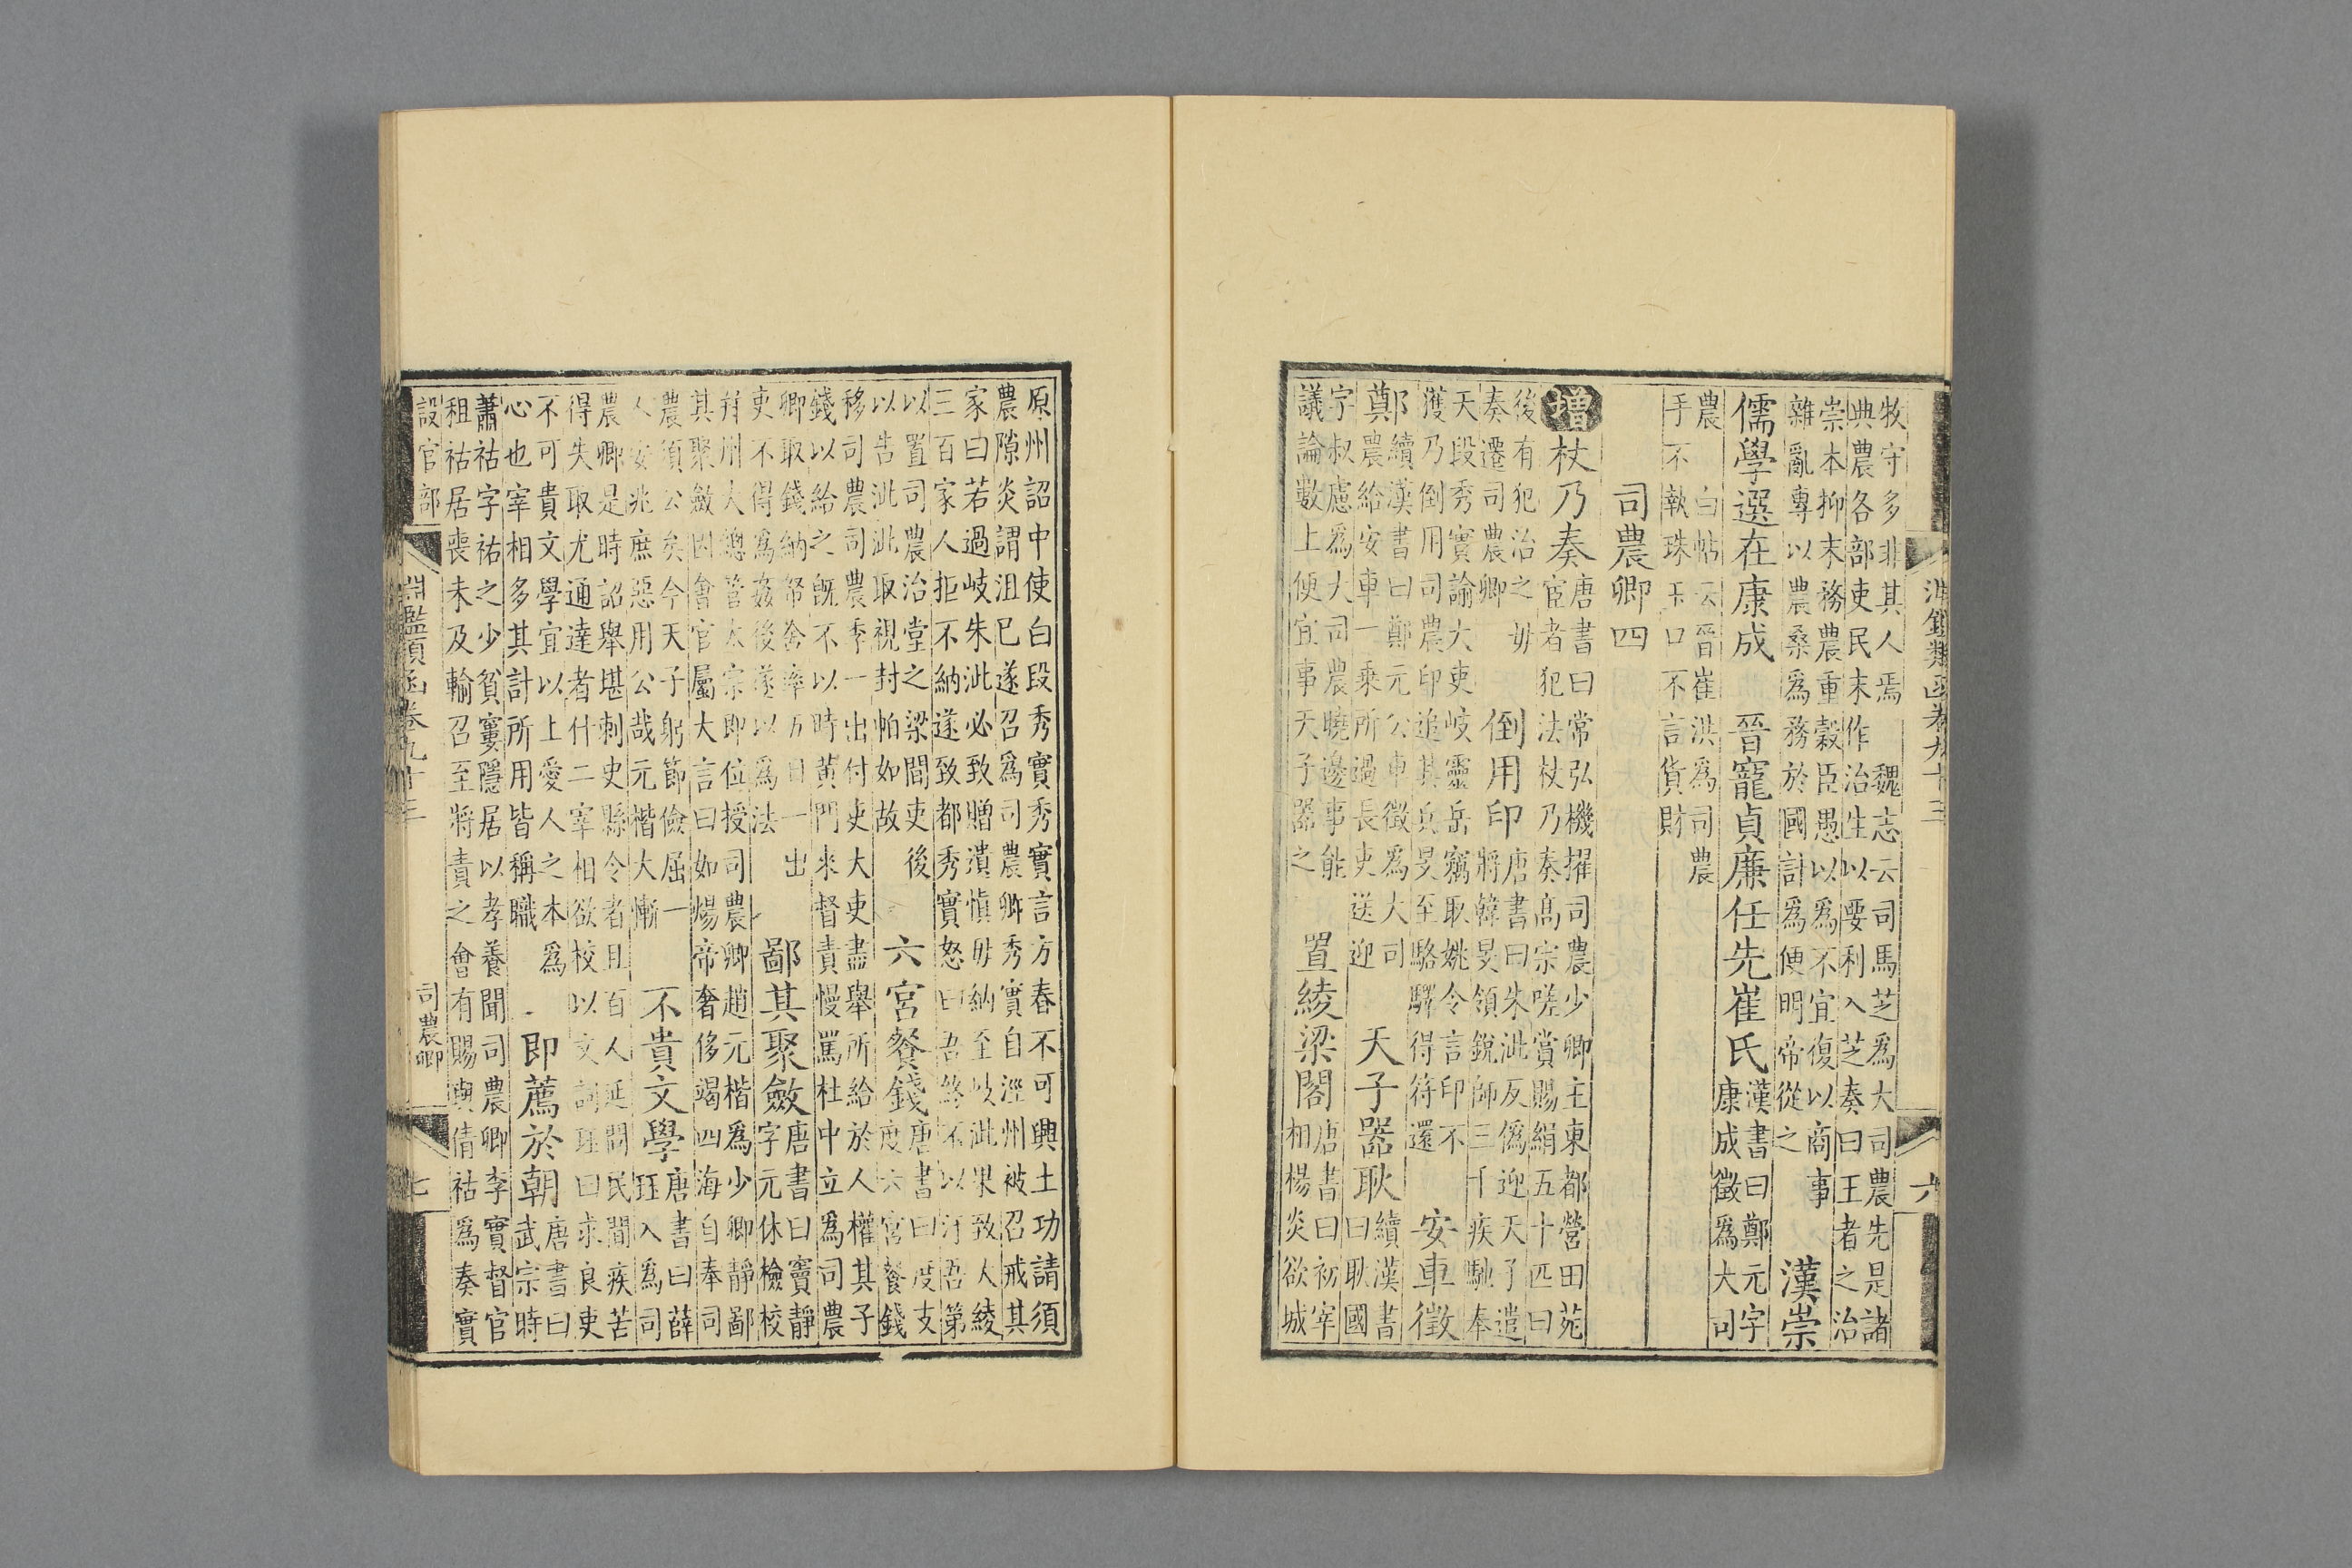 淵鑑類函卷九十三 六
牧守多非其人焉 魏志云司馬芝為大司農先是諸
典農各部吏民末作治生以要利入芝奏曰王者之治
崇本抑末務農重穀臣愚以為不宜復以商事
雜亂專以農桑為務於國計為便明帝從之
漢崇
儒學選在康成 晉寵貞廉任先崔氏
漢書曰鄭元字
康成徵為大司
農 白帖云晉崔洪為司農
手不執珠玉口不言貨財
司農卿四
增杖乃奏
唐書曰常弘機擢司農少卿主東都營田苑
宦者犯法杖乃奏高宗嗟賞賜絹五十匹曰
後有犯治之毋
奏遷司農卿
倒用印
唐書曰朱泚反偽迎天子遣
將韓旻領銳師三千疾馳奉
天段秀實諭大吏岐靈岳竊取姚令言印不
獲乃倒用司農印追其兵旻至駱驛得符還
安車徵
鄭
續漢書曰鄭元公車徵為大司
農給安車一乘所過長吏送迎
天子器耿
續漢書
曰耿國
字叔慮為大司農曉邊事能
議論數上便宜事天子器之
置綾梁閣
唐書曰初宰
相楊炎欲城
原州詔中使白段秀實秀實言方春不可興土功請須
農隙炎謂沮已遂召為司農卿秀實自涇州被召戒其
家曰若過岐朱泚必致贈潰慎毋納至岐泚果致大綾
三百家人拒不納遂致都秀實怒曰吾終不以汙吾第
以置司農治堂之梁間吏後
以告泚泚取視封帕如故
六宮餐錢
唐書曰度支
度六宮餐錢
移司農司農季一出付吏大吏盡舉所給於人權其子
錢以給之既不以時黃門來督責慢罵杜中立為司農
卿取錢納帑舍率五日一出
吏不得為姦後遂以為法
鄙其聚斂
唐書曰竇靜
字元休檢校
并州大總管太宗即位授司農卿趙元楷為少卿靜鄙
其聚斂因會官屬大言曰如煬帝奢侈竭四海自奉司
農須公矣今天子躬節儉屈一
人安兆庶惡用公哉元楷大慚
不貴文學
唐書曰薛
珏入為司
農卿是時詔舉堪刺史縣令者且百人延問民間疾苦
得失取尤通達者什二宰相欲校以文詞珏曰求良吏
不可貴文學宜以上愛人之本為
心也宰相多其計所用皆稱職
即薦於朝
唐書曰
武宗時
蕭祜字祐之少貧窶隱居以孝養聞司農卿李實督官
租祜居喪未及輸召至將責之會有賜與倩祜為奏實
設官部 淵鑑類函卷九十三 司農卿 七